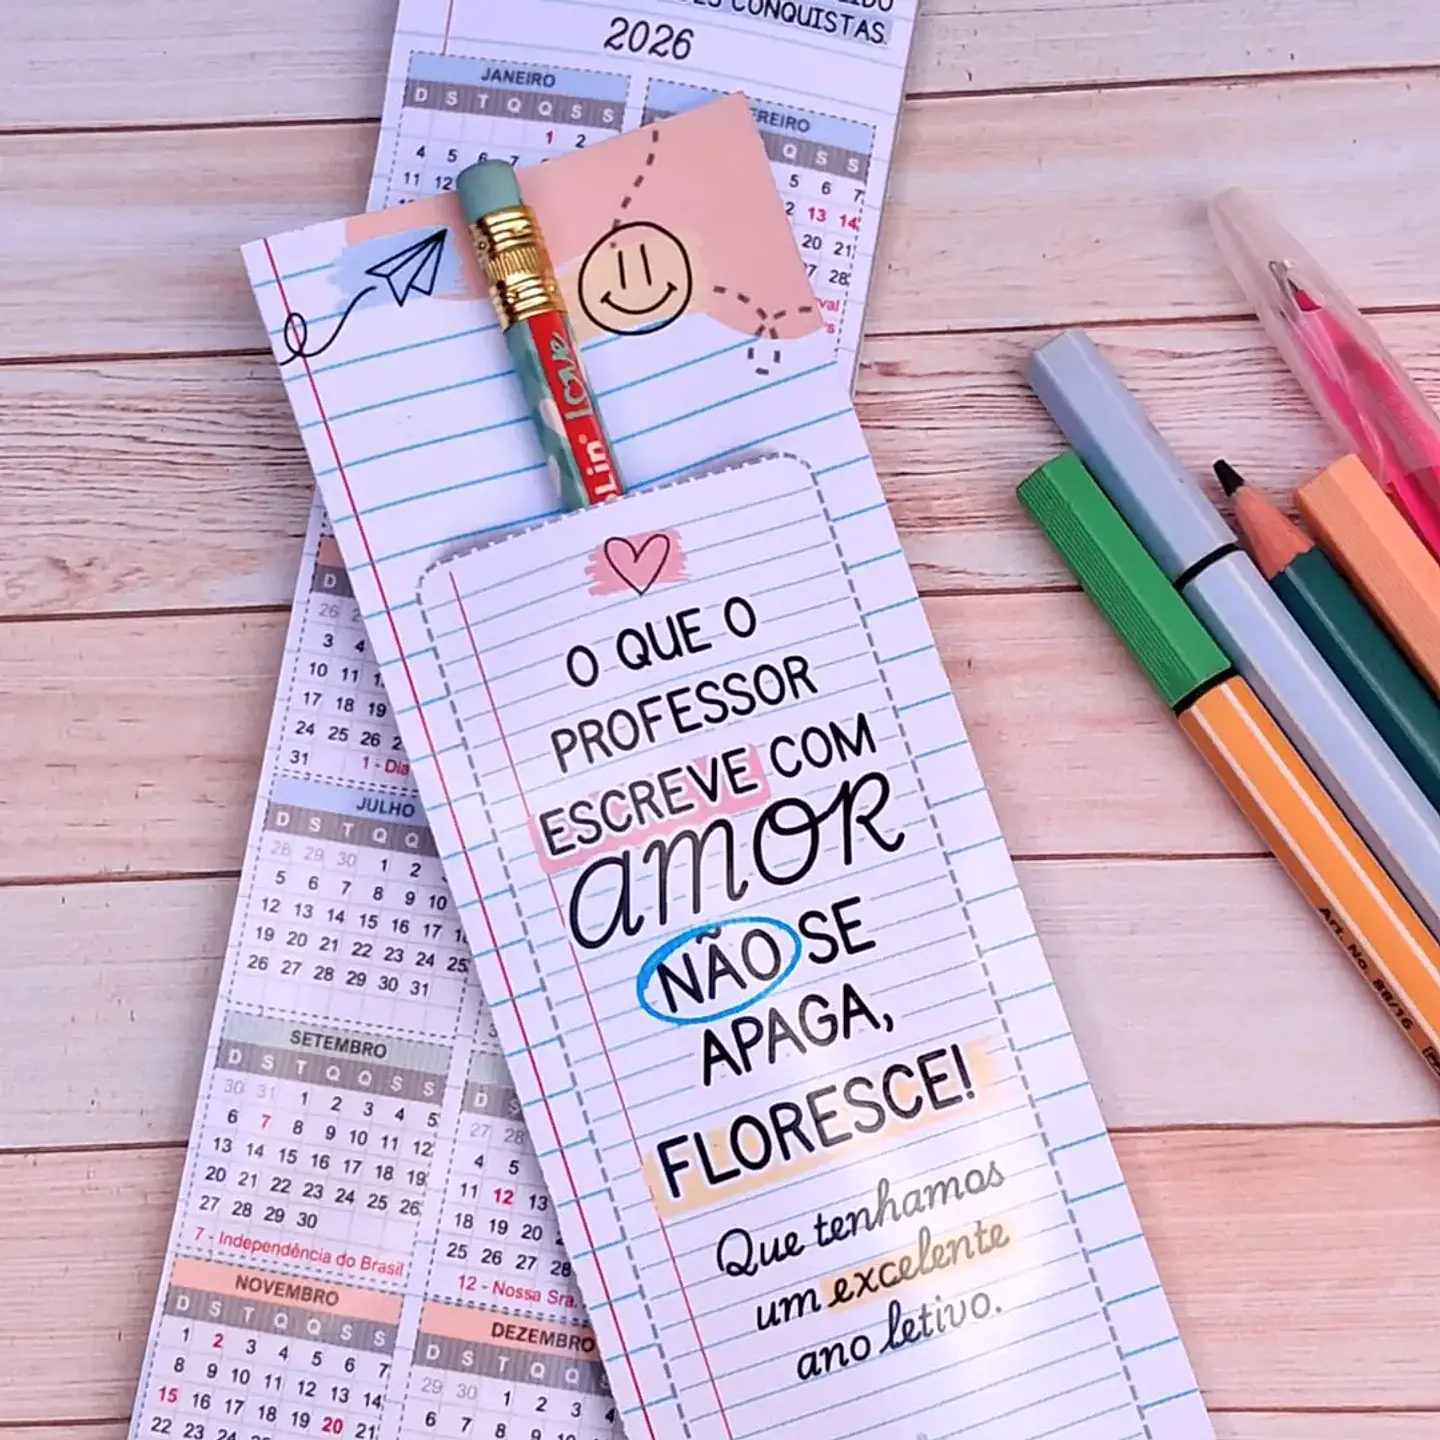 CONQUISTAS.
2026
JANEIRO
D S T Q Q S S
1 2
4 5 6 7
11 12
Q S S
5 6 7
13 14
20 21
28
O QUE O
PROFESSOR
ESCREVE COM
AMOR
NÃO SE
APAGA,
FLORESCE!
Que tenhamos
um excelente
ano letivo.
love
D
26
3 4
10 11
17 18 19
24 25 26
31
JULHO
D S T Q Q
28 29 30 1 2
5 6 7 8 9 10
12 13 14 15 16 17
19 20 21 22 23 24 25
26 27 28 29 30 31
SETEMBRO
D S T Q Q S S
30 31 1 2 3 4 5
6 7 8 9 10 11 12
13 14 15 16 17 18 19
20 21 22 23 24 25 26
27 28 29 30
7 - Independência do Brasil
D
27 28
4 5
11 12 13
18 19 20
25 26 27 28
12 - Nossa Sra.
NOVEMBRO
D S T Q Q S S
1 2 3 4 5 6 7
8 9 10 11 12 13 14
15 16 17 18 19 20 21
22 23 24
DEZEMBRO
D S T Q Q
29 30 1 2 3 4
6 7 8 9 10
Art. No. 88/16